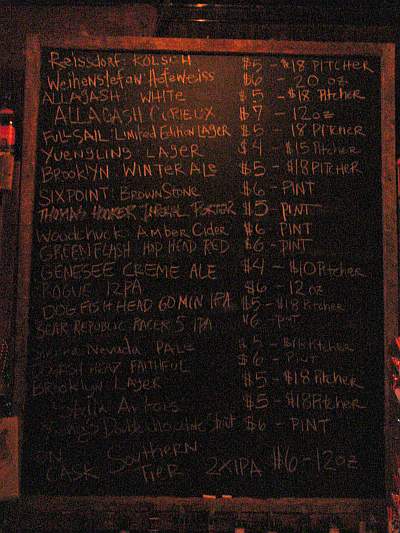 Reissdorf: Kolsch $5 - $18 PITCHER
Weihenstefan: Hefeweiss $6 - 20 oz
ALLAGASH: WHITE $5 - $18 PITCHER
ALLAGASH CURIEUX $7 - 12oz
FULLSAIL: Limited Edition Lager $5 - 18 PITCHER
YUENGLING LAGER $4 - $15 PITCHER
BROOKLYN: WINTER ALE $5 - $18 PITCHER
SIXPOINT: BROWNSTONE $6 - PINT
THOMAS HOOKER IMPERIAL PORTER $5 - PINT
Woodchuck Amber Cider $6 - PINT
GREENFLASH HOP HEAD RED $6 - PINT
GENESEE CREME ALE $4 - $10 Pitcher
ROGUE I2PA $6 - 12oz
DOGFISH HEAD 60 MIN IPA $5 - $18 Pitcher
BEAR REPUBLIC RACER 5 IPA $6 - PINT
Sierra Nevada PALE $5 - Pitcher
DOGFISH HEAD FAITHFULL $6 - PINT
Brooklyn Lager $5 - $18 Pitcher
Stella Artois $5 - $18 Pitcher
Double Chocolate Stout $6 - PINT
ON CASK Southern Tier 2XIPA $6 - 12oz